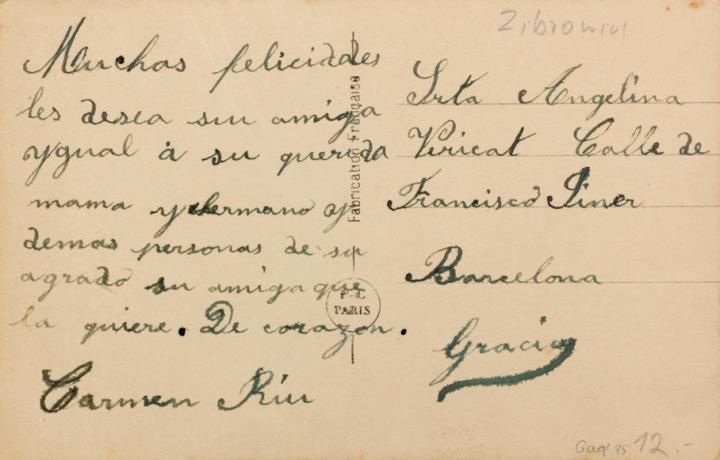 Muchas felicidades
les desea suu amiga
ygual á su querida
mama y hermano y
demas personas de su
agrado su amiga que
la quiere. De corazon.
Carmen Riu
Fabrication Française
P-C
PARIS
Srta Angelina
Viricat Calle de
Francisco Giner
Barcelona
Gracia
12.-